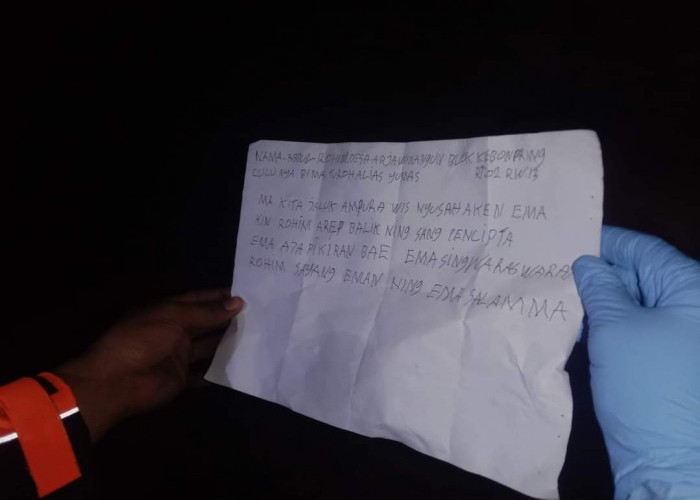 NAMA-ABDUL-ROHIM DESA-ARJAWINANGUN BLOK KEBONPRING
CUCU NYA BI MA SUROH ALIAS YUNAS RT01 RW13
MA KITA JALUK AMPURA WIS NYUSAHAKEN EMA
KIN ROHIM AREP BALIK NING SANG PENCIPTA
EMA AJA PIKIRAN BAE EMA SING WARAS WARAS
ROHIM SAYANG EMAN NING EMA SALAM MA